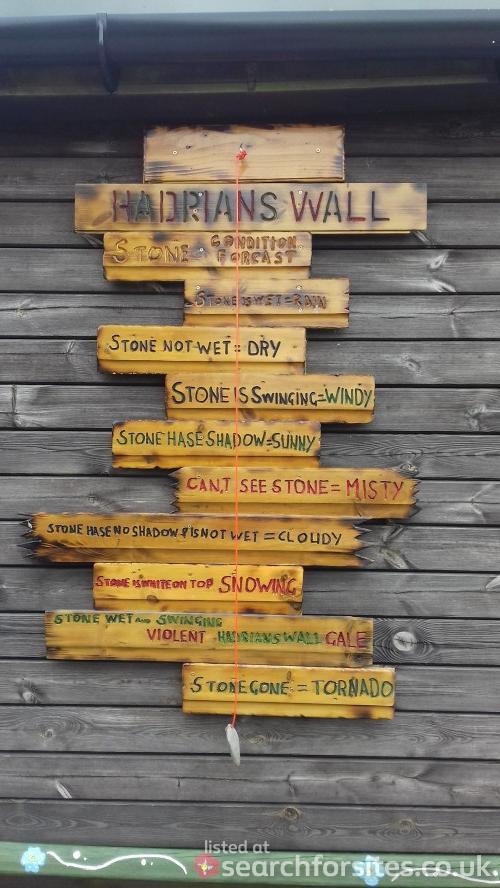 HADRIANS WALL
STONE CONDITION
FORCAST
STONE IS WET=RAIN
STONE NOT WET= DRY
STONE IS SWINGING=WINDY
STONE HASE SHADOW=SUNNY
CAN,T SEE STONE= MISTY
STONE HASE NO SHADOW & IS NOT WET = CLOUDY
STONE IS WHITE ON TOP SNOWING
STONE WET AND SWINGING
VIOLENT HADRIANS WALL GALE
STONE GONE = TORNADO
listed at
searchforsites.co.uk